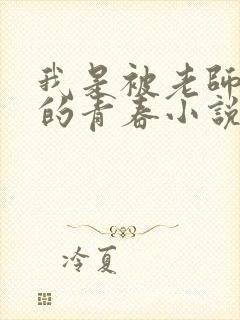 我是被老師
的青春小說
冷夏